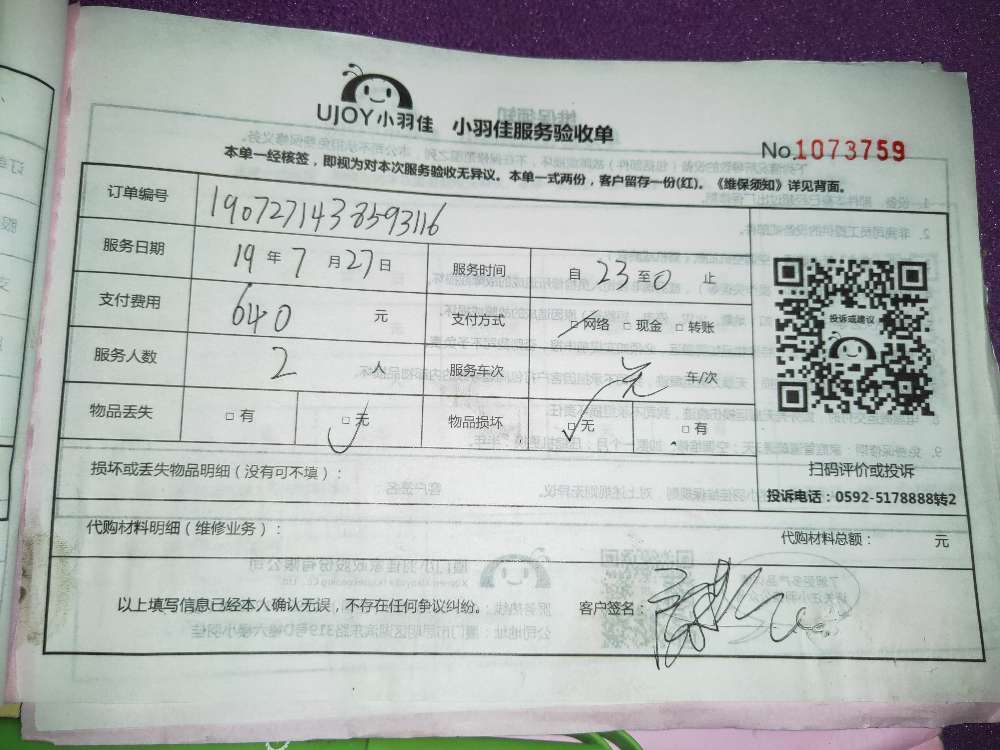 UJOY小羽佳 小羽佳服务验收单
No.1073759
本单一经核签，即视为对本次服务验收无异议。本单一式两份，客户留存一份(红)。《维保须知》详见背面。
订单编号 1907271438593116
服务日期 19 年 7 月 27 日 服务时间 自 23 至 0 止
支付费用 640 元 支付方式 □网络 □现金 □转账
投诉或建议
服务人数 2 人 服务车次 无 车/次
物品丢失 □有 □无 物品损坏 □无 □有
扫码评价或投诉
损坏或丢失物品明细（没有可不填）：
投诉电话：0592-5178888转2
代购材料明细（维修业务）： 代购材料总额： 元
以上填写信息已经本人确认无误，不存在任何争议纠纷。 客户签名：